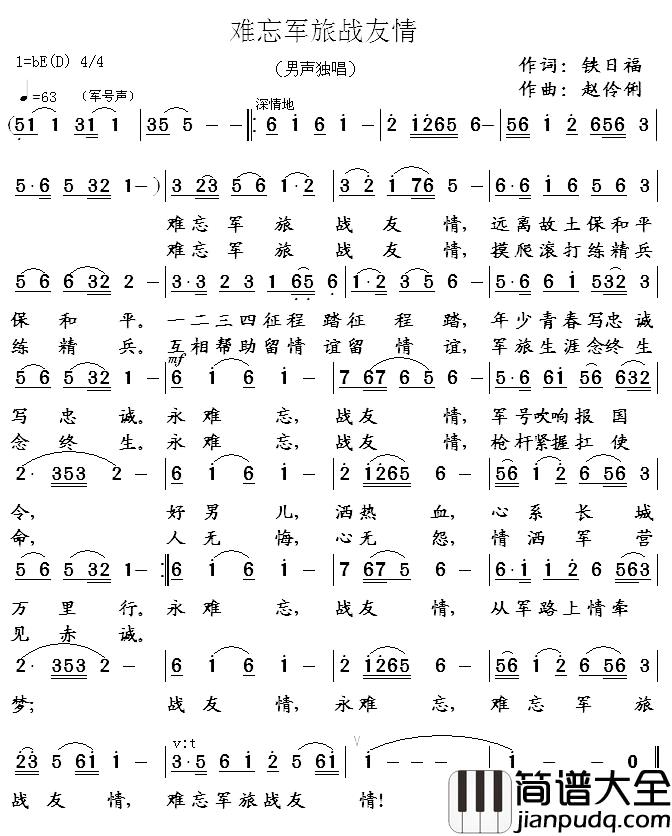 难忘军旅战友情
1=bE(D) 4/4
（男声独唱）
作词：铁日福
作曲：赵伶俐
=63 （军号声）
深情地
(51 1 31 1 | 35 5 - - ‖: 6 i 6 i - | 2 i265 6 - | 56 i 2 656 3
5·6 5 32 1 -) | 3 23 5 6 1·2 | 3 2 i 76 5 - | 6·6 i 5·6 5 3
难忘军旅 战友情，远离故土保和平
难忘军旅 战友情，摸爬滚打练精兵
5 6 6 32 2 - | 3·3 2 3 1 65 6 | 1·6 1 2 3 6 5 | 5·6 6 i 5 32 3
保和平。一二三四征程踏征程踏，年少青春写忠诚
练精兵。互相帮助留情谊留情谊，军旅生涯念终生
mf
5 6 5 32 1 - | 6 i 6 i - | 7 67 6 5 6 - | 5·6 61 5 6 632
写忠诚。永难忘，战友情，军号吹响报国
念终生。永难忘，战友情，枪杆紧握扛使
2· 353 2 - | 6 i 6 i - | 2 i265 6 - | 56 i 2 656 3
令，好男儿，洒热血，心系长城
命，人无悔，心无怨，情洒军营
5 6 5 32 1 - :‖ 6 i 6 i - | 7 67 5 6 - | 6·i i 2 6 563
万里行。永难忘，战友情，从军路上情牵
见赤诚。
2· 353 2 - | 6 i 6 i - | 2 i265 6 - | 56 i 2 656 3
梦；战友情，永难忘，难忘军旅
v:t
23 5 6i i - | 3·5 6i 2 5 6i | i - - - | i - - 0 ‖
战友情，难忘军旅战友情！
简谱大全
jianpudq.com